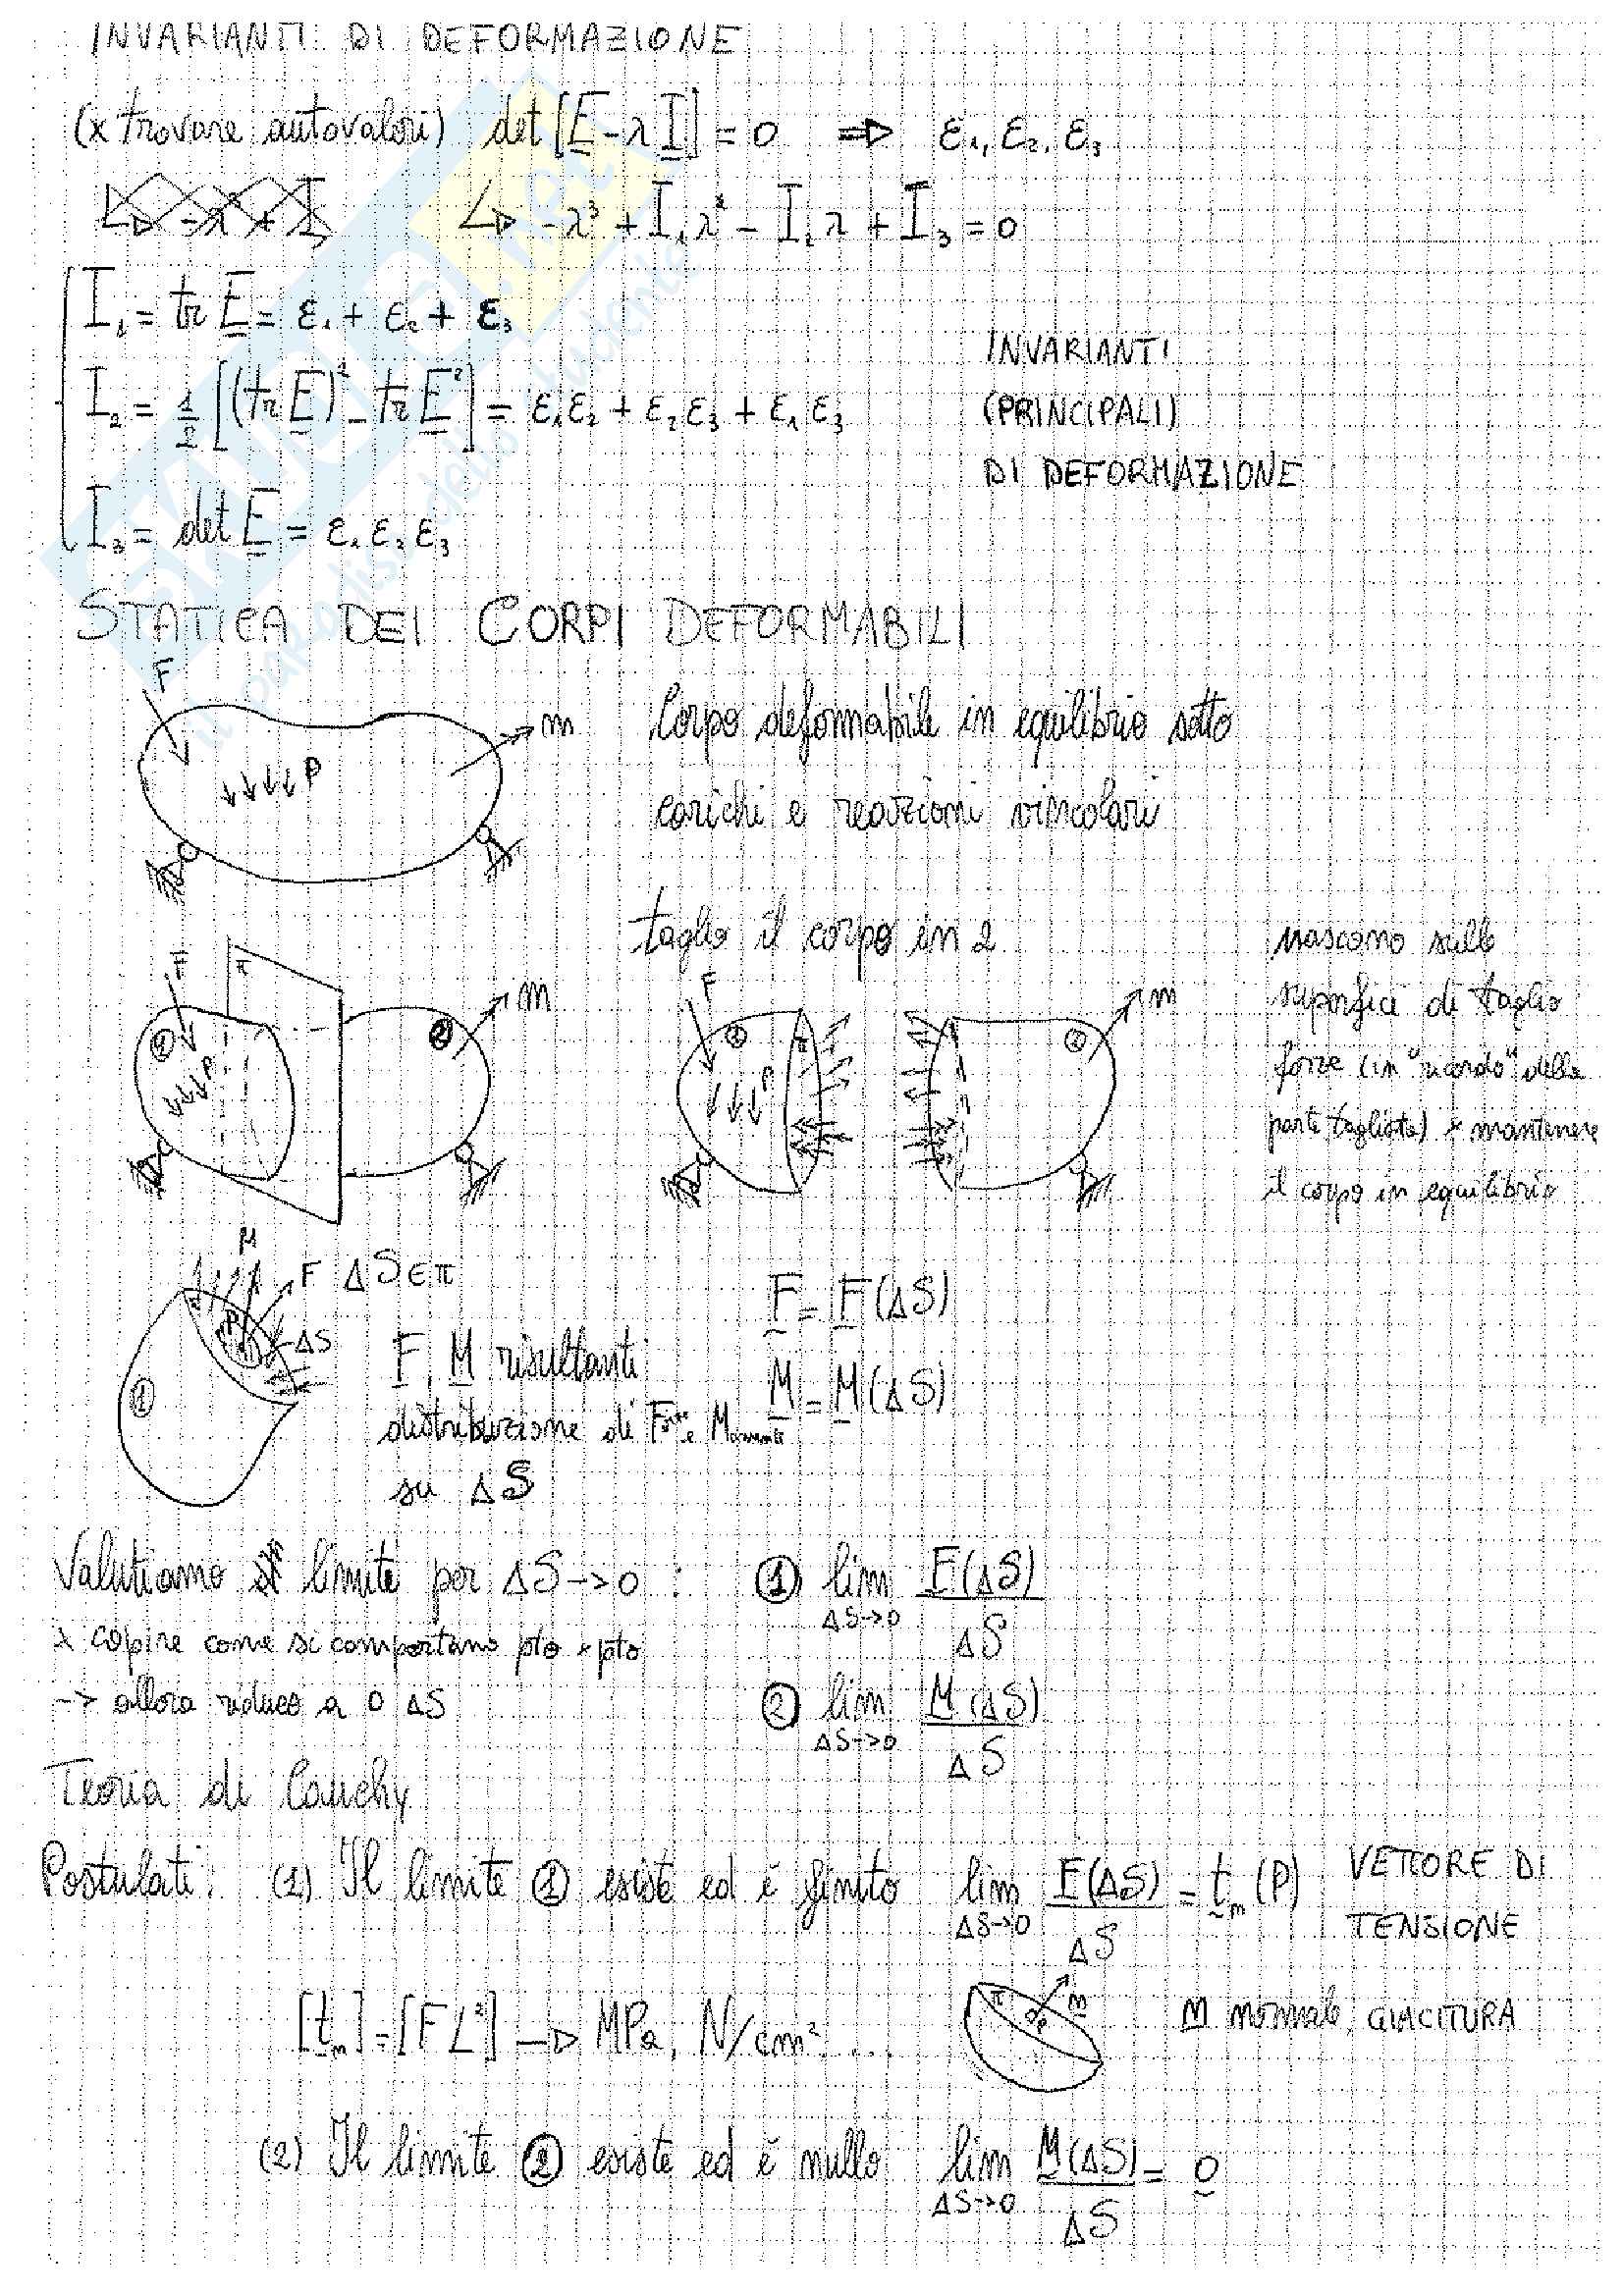 INVARIANTI DI DEFORMAZIONE
(x trovare autovalori) det[E-λI]=0 ⇒ ε₁, ε₂, ε₃
↳ -λ³+I₁λ²-I₂λ+I₃=0
I₁ = tr E = ε₁ + ε₂ + ε₃
I₂ = 1/2 [(tr E)² - tr E²] = ε₁ε₂ + ε₂ε₃ + ε₁ε₃
I₃ = det E = ε₁ ε₂ ε₃
INVARIANTI
(PRINCIPALI)
DI DEFORMAZIONE
STATICA DEI CORPI DEFORMABILI
F
m
p
Corpo deformabile in equilibrio sotto
carichi e reazioni vincolari
taglio il corpo in 2
F
π
m
①
②
p
F
①
π
p
②
m
nascono sulle
superfici di taglio
forze (in "ricordo" della
parte tagliata) x mantenere
il corpo in equilibrio
M
F
ΔS∈π
P
ΔS
①
F, M risultanti
distribuzione di Forze e Momenti
su ΔS
F = F(ΔS)
M = M(ΔS)
Valutiamo il limite per ΔS→0 :
① lim ΔS→0 F(ΔS)/ΔS
x capire come si comportano pto x pto
-> allora riduco a 0 ΔS
② lim ΔS→0 M(ΔS)/ΔS
Teoria di Cauchy
Postulati: (1) Il limite ① esiste ed è finito lim ΔS→0 F(ΔS)/ΔS = tₙ(P) VETTORE DI
TENSIONE
[tₙ]=[F L²] → MPa, N/cm² ...
π
P
n
n normale, GIACITURA
(2) Il limite ② esiste ed è nullo lim ΔS→0 M(ΔS)/ΔS = 0